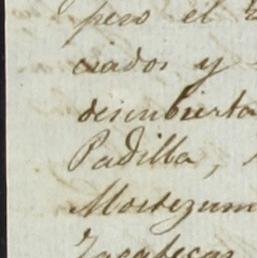 pero el
ciados y
descubierta
Padilla,
Moctezum
Zacatecas